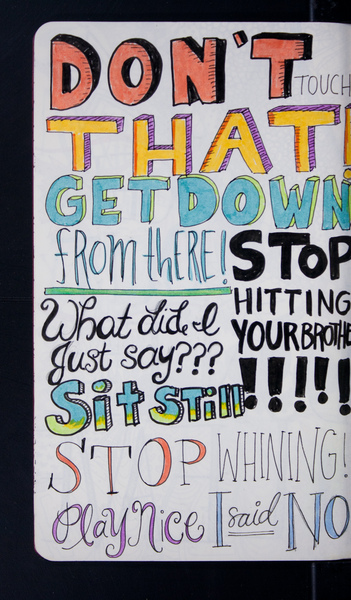 DON'T TOUCH
THAT!
GET DOWN
from thERE!
STOP
HITTING
YOUR BROTHE
!!!!!
What did I
Just say???
Sit Still
STOP WHINING!
Play Nice I said NO